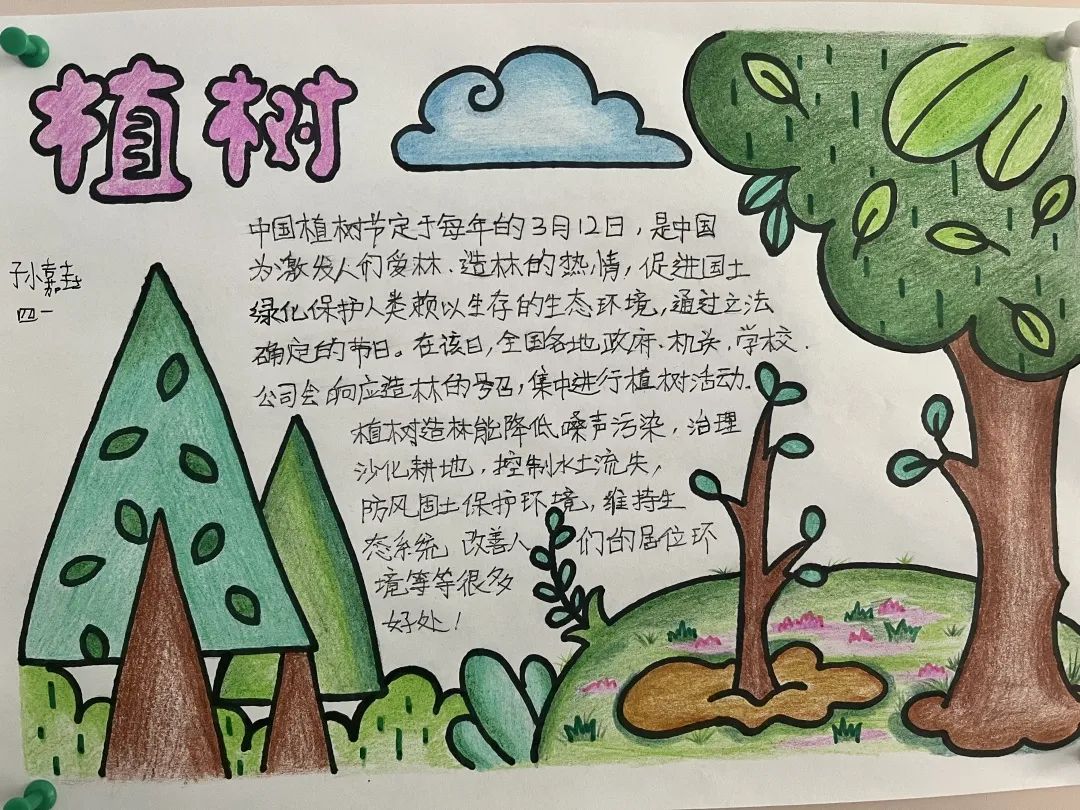 植树
中国植树节定于每年的3月12日，是中国
为激发人们爱林、造林的热情，促进国土
绿化保护人类赖以生存的生态环境，通过立法
确定的节日。在该日，全国各地政府、机关、学校、
公司会响应造林的号召，集中进行植树活动。
植树造林能降低噪声污染，治理
沙化耕地，控制水土流失，
防风固土保护环境，维持生
态系统 改善人们的居位环
境等等很多
好处！
小嘉
四一